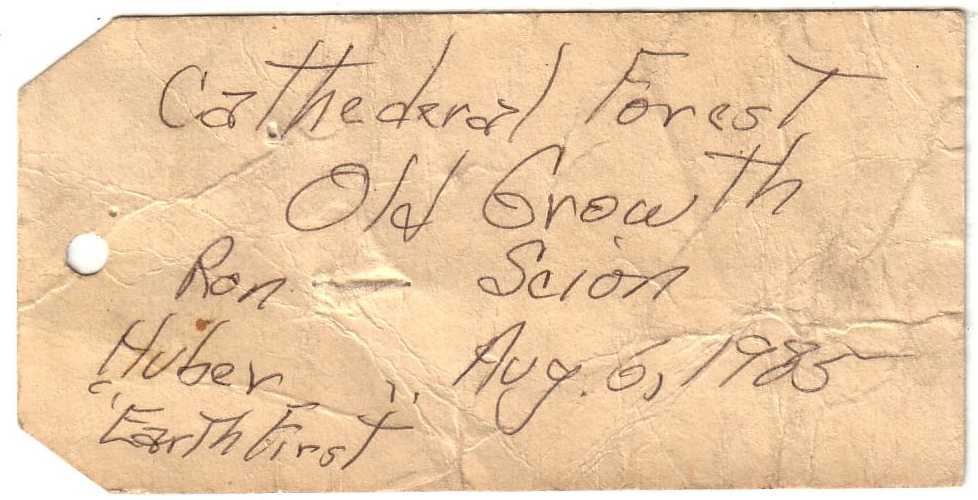 Cathederal Forest
Old Growth
Ron — Scion
Huber Aug. 6, 1985
"Earth First"